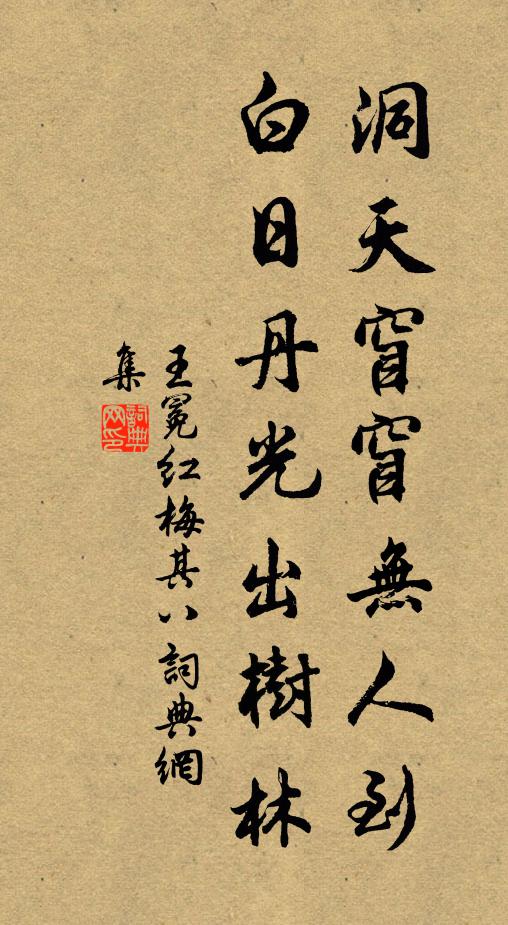 洞天窅窅無人到
白日丹光出樹林
王冕紅梅其八詞典網
集
詞典
网印